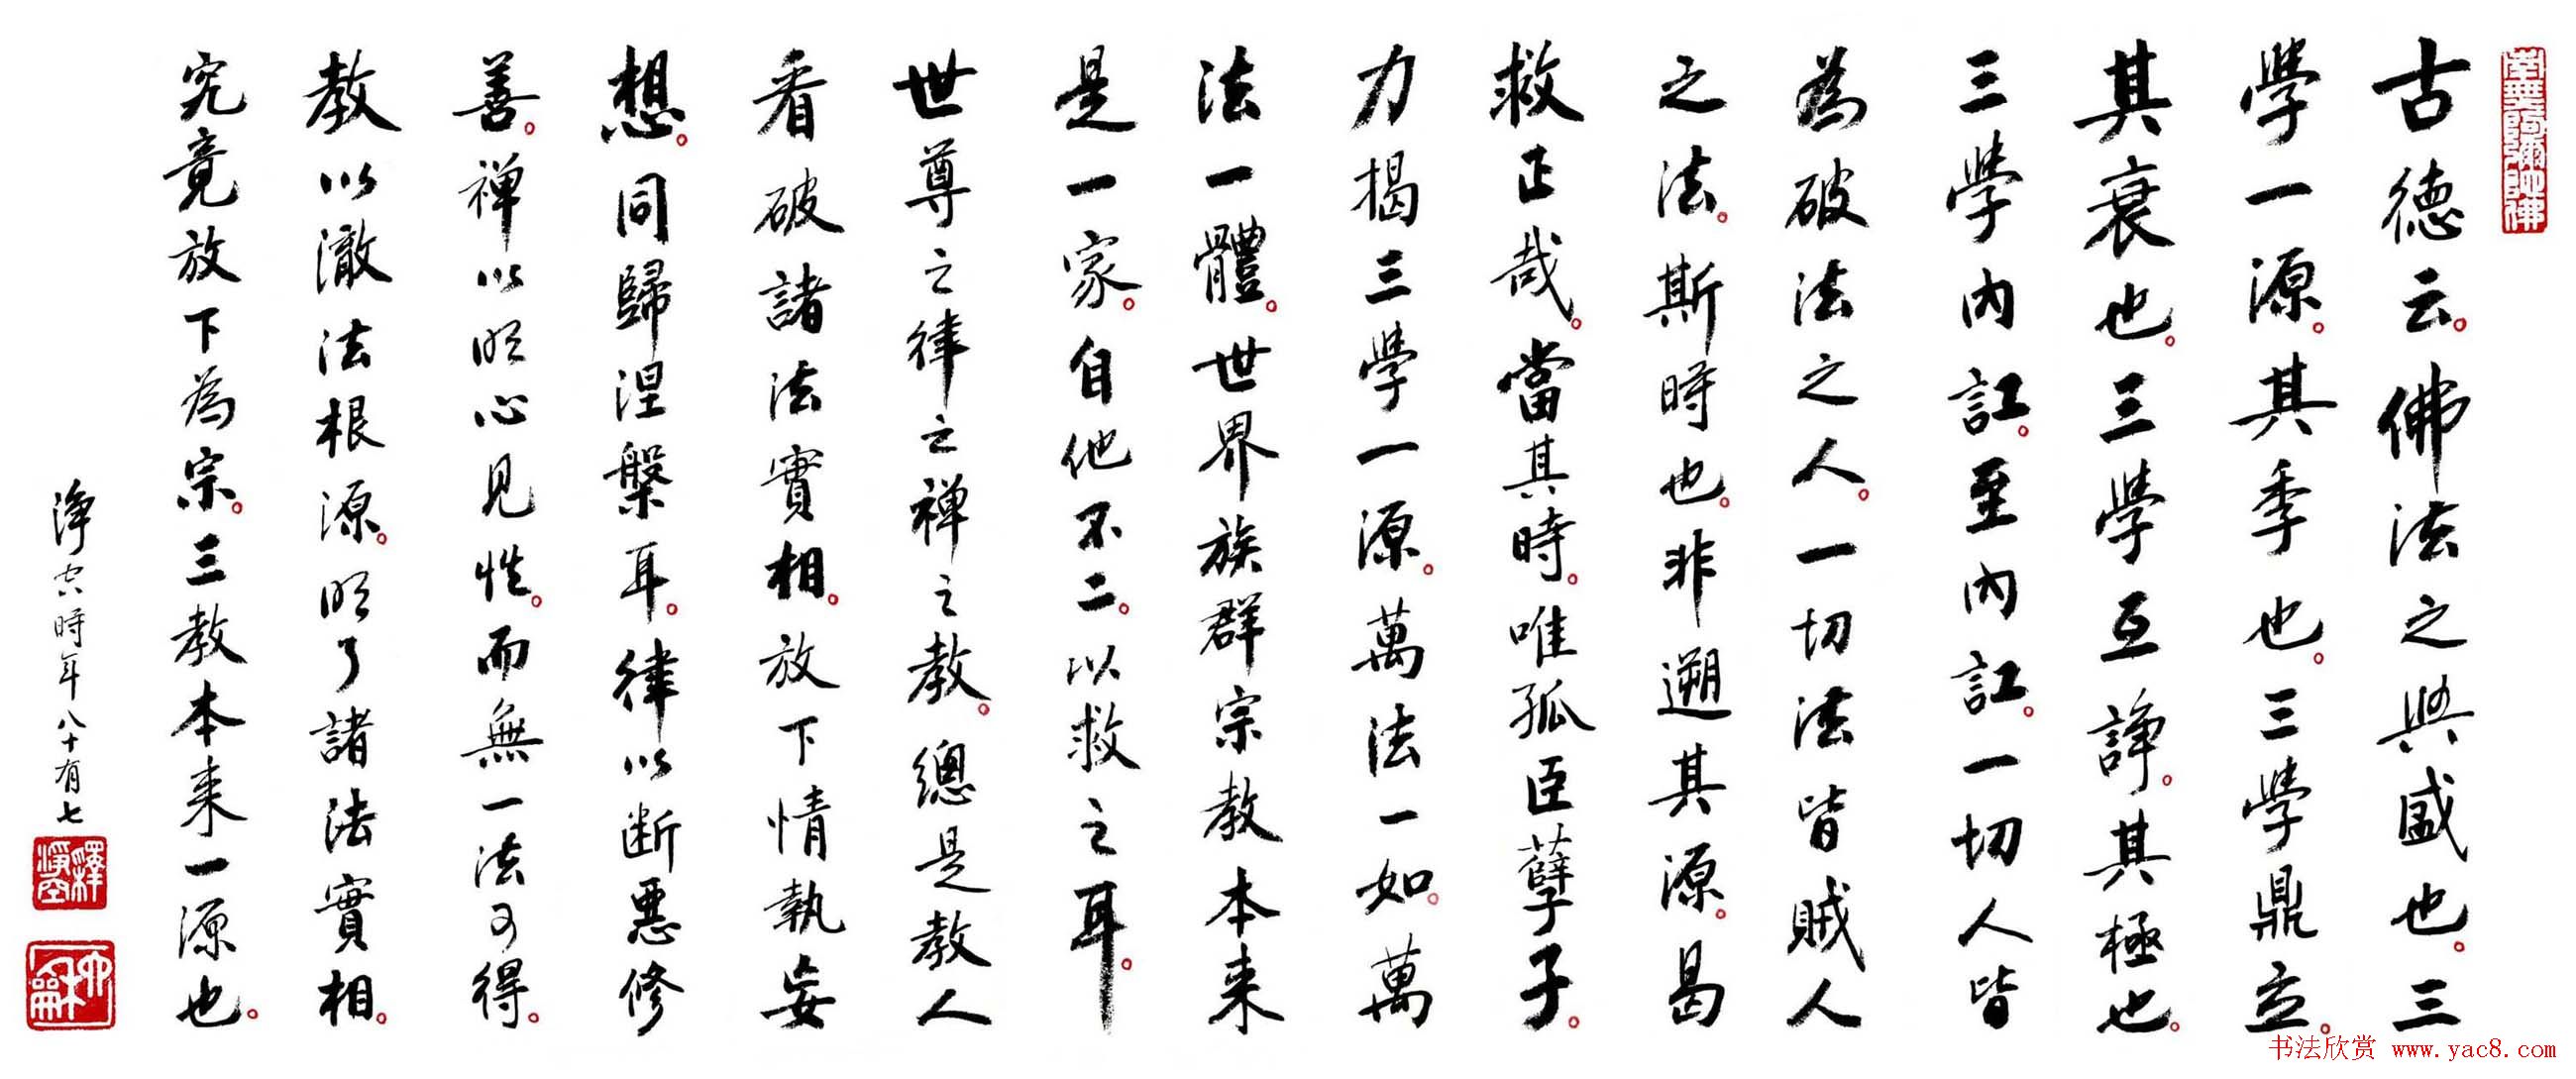 南無阿彌陀佛
古德云。佛法之興盛也。三
學一源。其季也。三學鼎立。
其衰也。三學互諍。其極也。
三學內訌。至內訌。一切人皆
為破法之人。一切法皆賊人
之法。斯時也。非遡其源。曷
救正哉。當其時。唯孤臣孽子。
力揭三學一源。萬法一如。萬
法一體。世界族群宗教本来
是一家。自他不二。以救之耳。
世尊之律之禅之教。總是教人
看破諸法實相。放下情執妄
想。同歸涅槃耳。律以断惡修
善。禅以明心見性。而無一法可得。
教以澈法根源。明了諸法實相。
究竟放下為宗。三教本来一源也。
淨空時年八十有七
釋淨空
書法欣赏 www.yac8.com